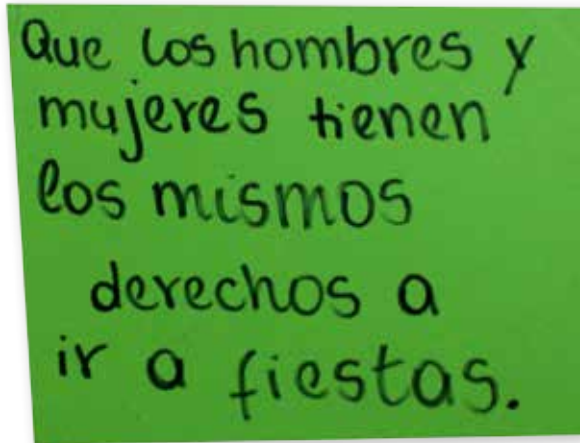 Que los hombres y
mujeres tienen
los mismos
derechos a
ir a fiestas.